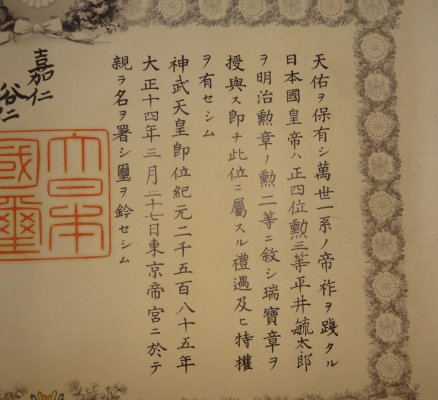 天佑ヲ保有シ萬世一系ノ帝祚ヲ踐タル
日本國皇帝ハ正四位勲三等平井毓太郎
ヲ明治勲章ノ勲二等ニ敘シ瑞寶章ヲ
授與ス卽チ此位ニ屬スル禮遇及ヒ特權
ヲ有セシム
神武天皇卽位紀元二千五百八十五年
大正十四年三月二十七日東京帝宮ニ於テ
親ラ名ヲ署シ璽ヲ鈐セシム
嘉仁
裕仁
大日本
國璽